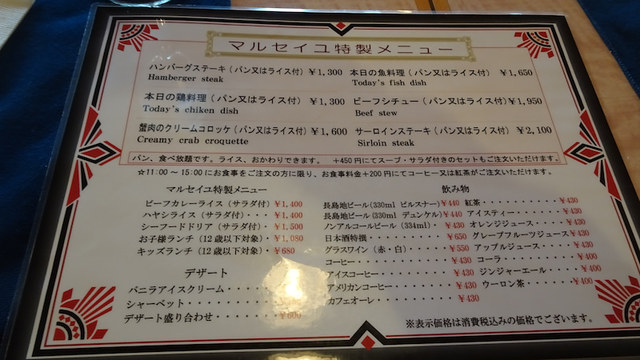 マルセイユ特製メニュー
ハンバーグステーキ (パン又はライス付) ￥1,300
Hamberger steak
本日の魚料理 (パン又はライス付) ￥1,650
Today's fish dish
本日の鶏料理 (パン又はライス付) ￥1,300
Today's chiken dish
ビーフシチュー (パン又はライス付) ￥1,950
Beef stew
蟹肉のクリームコロッケ (パン又はライス付) ￥1,600
Creamy crab croquette
サーロインステーキ (パン又はライス付) ￥2,100
Sirloin steak
パン、食べ放題です。ライス、おかわりできます。 +450円にてスープ・サラダ付きのセットもご注文いただけます。
☆11:00 ～ 15:00にお食事をご注文の方に限り、お食事料金+200円にてコーヒー又は紅茶がご注文いただけます。
マルセイユ特製メニュー
ビーフカレーライス (サラダ付) ￥1,400
ハヤシライス (サラダ付)・・・￥1,400
シーフードドリア (サラダ付)・￥1,500
お子様ランチ (12歳以下対象)・￥1,080
キッズランチ (12歳以下対象)・￥680
デザート
バニラアイスクリーム・・・
シャーベット・・・
デザート盛り合わせ・・・
飲み物
長島地ビール(330ml ピルスナー) ￥440
長島地ビール(330ml デュンケル) ￥440
ノンアルコールビール (334ml)・￥430
日本酒特撰・・・￥650
グラスワイン (赤・白)・・・￥550
コーヒー・・・￥430
アイスコーヒー・・・￥430
アメリカンコーヒー・・・￥430
カフェオーレ・・・￥430
紅茶・・・￥430
アイスティー・・・￥430
オレンジジュース・・・￥430
グレープフルーツジュース￥430
アップルジュース・・・￥430
コーラ・・・￥400
ジンジャーエール・・・￥400
ウーロン茶・・・￥400
※表示価格は消費税込みの価格でございます。